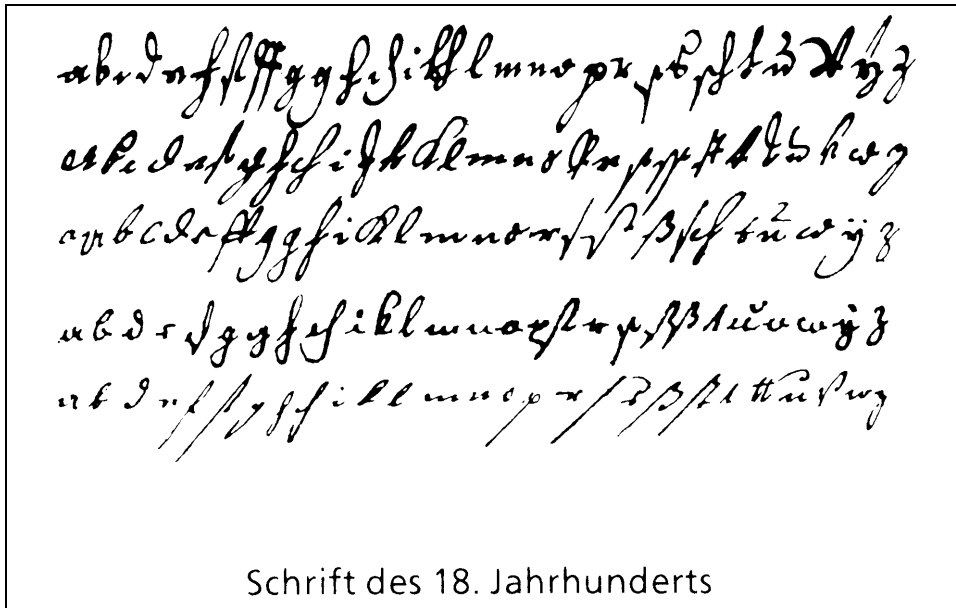 a b c d e f st ff g g h ch i k k l m n o p r s s sch t u v y z
a b c d e f g h ch i k k k l m n o r s st t u v w z
a b c d e ff g g h i k l m n o r s s ß sch t u w y z
a b d e f g g h ch i k l m n o p st r s ß t u v w y z
a b d e f st g h ch i k l m n o p r s s ß st t tt u v w z
Schrift des 18. Jahrhunderts